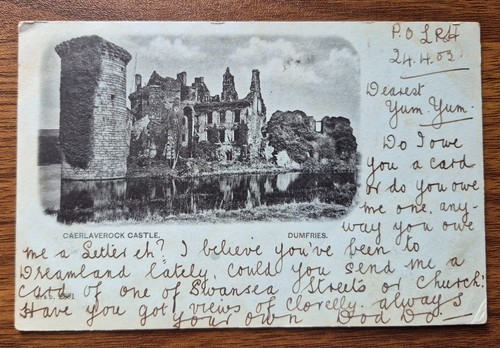 P.O LRH
24.4.03
Dearest
Yum. Yum.
Do I owe
you a card
or do you owe
me one, any-
way you owe
CAERLAVEROCK CASTLE.
DUMFRIES.
me a Letter eh? I believe you've been to
Dreamland lately, could you send me a
card of one of Swansea Streets or Church:
Have you got views of Clovelly. always
your own Dod Do.